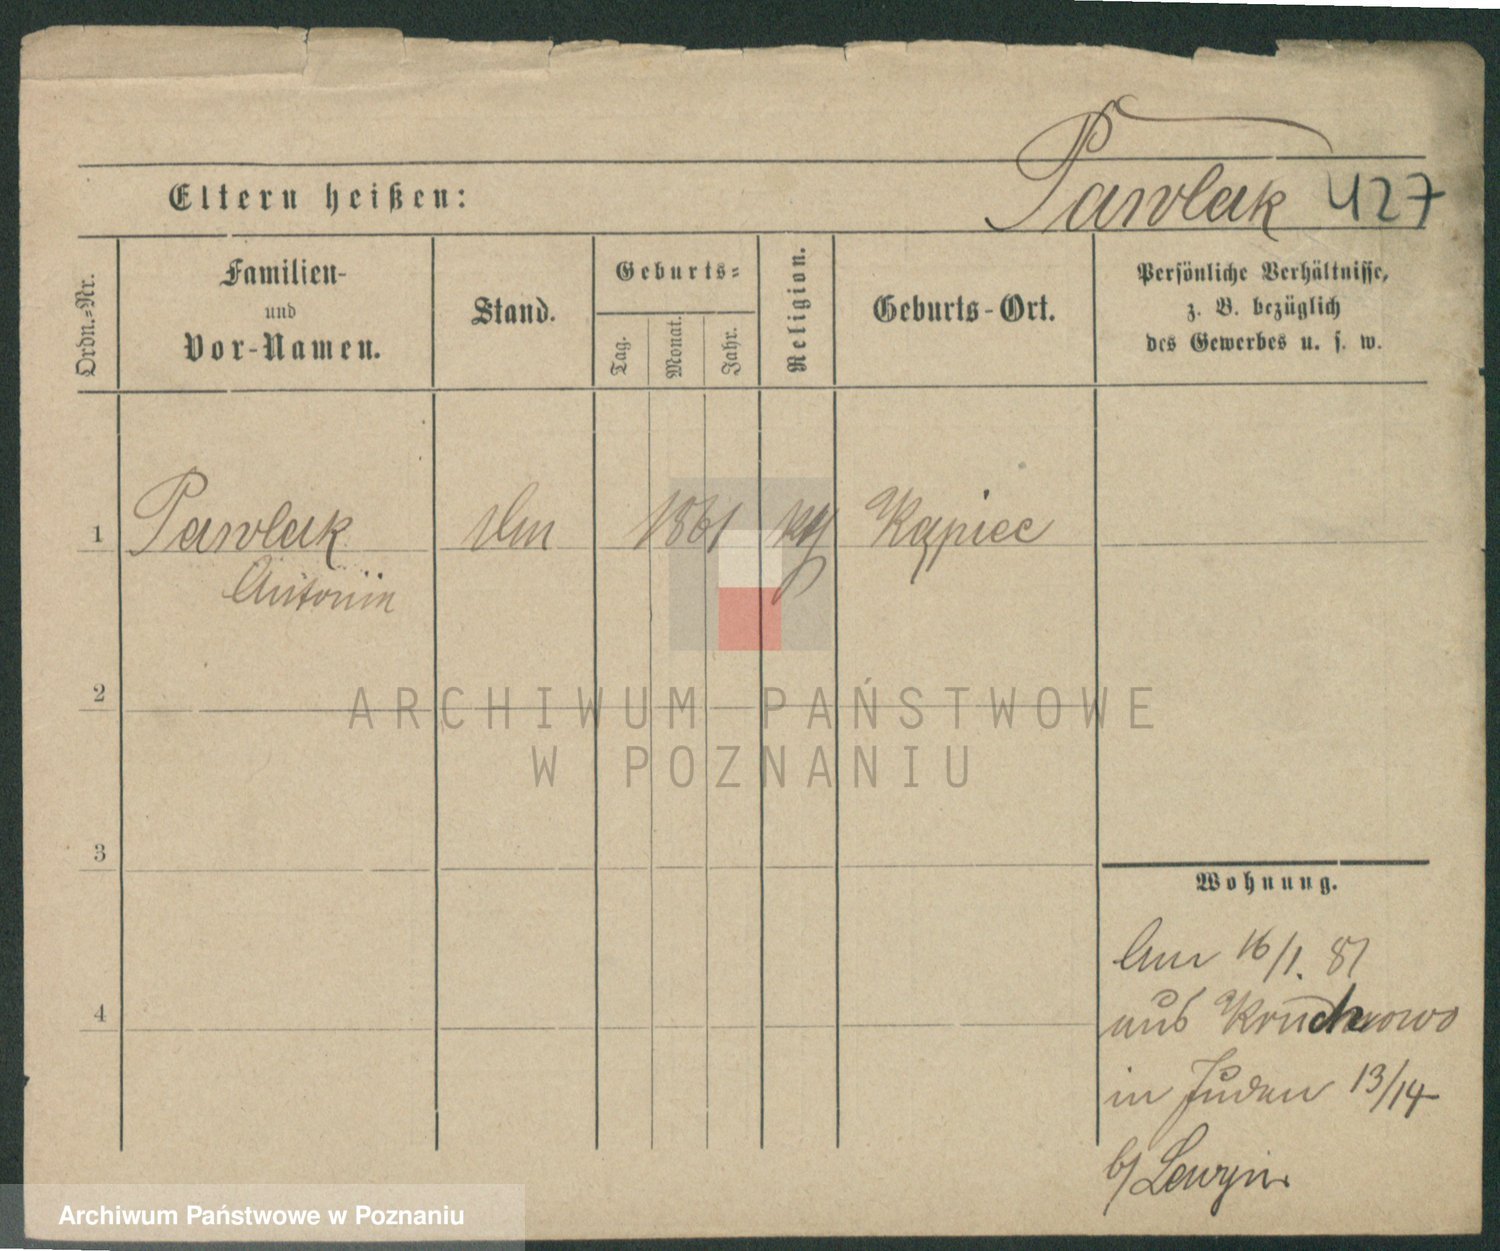 Pawlak 427
Eltern heißen:
Ordn.-Nr.
Familien-
und
Vor-Namen.
Stand.
Geburts-
Tag.
Monat.
Jahr.
Religion.
Geburts-Ort.
Persönliche Verhältnisse,
z. B. bezüglich
des Gewerbes u. s. w.
1 Pawlak 1861 Kąpiec
Antonin
2
3
4
Wohnung.
16/1. 81
aus Kruchowo
in Juden 13/14
b/ Lewyin
ARCHIWUM PAŃSTWOWE
W POZNANIU
Archiwum Państwowe w Poznaniu